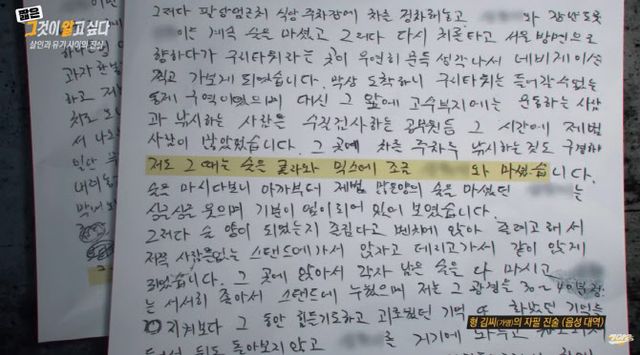 짧은
그것이 알고 싶다
살인과 유기 사이의 진실
그러다 팔당댐근처 식당 주차장에 차를 정차해놓고
이는 계속 술을 마셨고 그러다 다시 차를타고 서울 방면으로
향하다가 구리타워라는 곳이 우연히 문득 생각나서 네비게이션
찍고 가보게 되었습니다. 막상 도착하니 구리타워는 들어갈수없는
통제 구역이었으며 대신 그 앞에 고수부지에는 운동하는 사람
과 낚시하는 사람들 수질검사하는 공무원등 그 시간에 제법
사람이 많았었습니다. 그 곳에 차를 주차후 낚시하는것도 구경하
저도 그 때는 술을 콜라와 믹스해 조금 와 마셨습니다.
술을 마시다보니 아까부터 제법 많은양의 술을 마셨던 는
싱글싱글 웃으며 기분이 업이되어 있어 보였습니다.
그러다 술 양이 되었는지 졸립다고 벤치에 앉아 졸려고 해서
저쪽 사람들없는 스탠드에가서 앉자고 데리고가서 같이 앉게
되었습니다. 그 곳에 앉아서 각자 남은 술을 다 마시고
는 서서히 졸아서 스탠드에 누웠으며 저는 그 광경을 30~40분정
도 지켜보다 그 동안 힘들기도하고 괴로웠던 기억 또 화났던 기억등
뒤도 돌아보지 않고 를 거기에
과자 한
하고 저
차로
서 나
일단
내려놓
형 김씨(가명)의 자필 진술 (음성 대역)